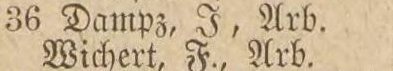 36 Dampz, J, Arb.
Wichert, F., Arb.